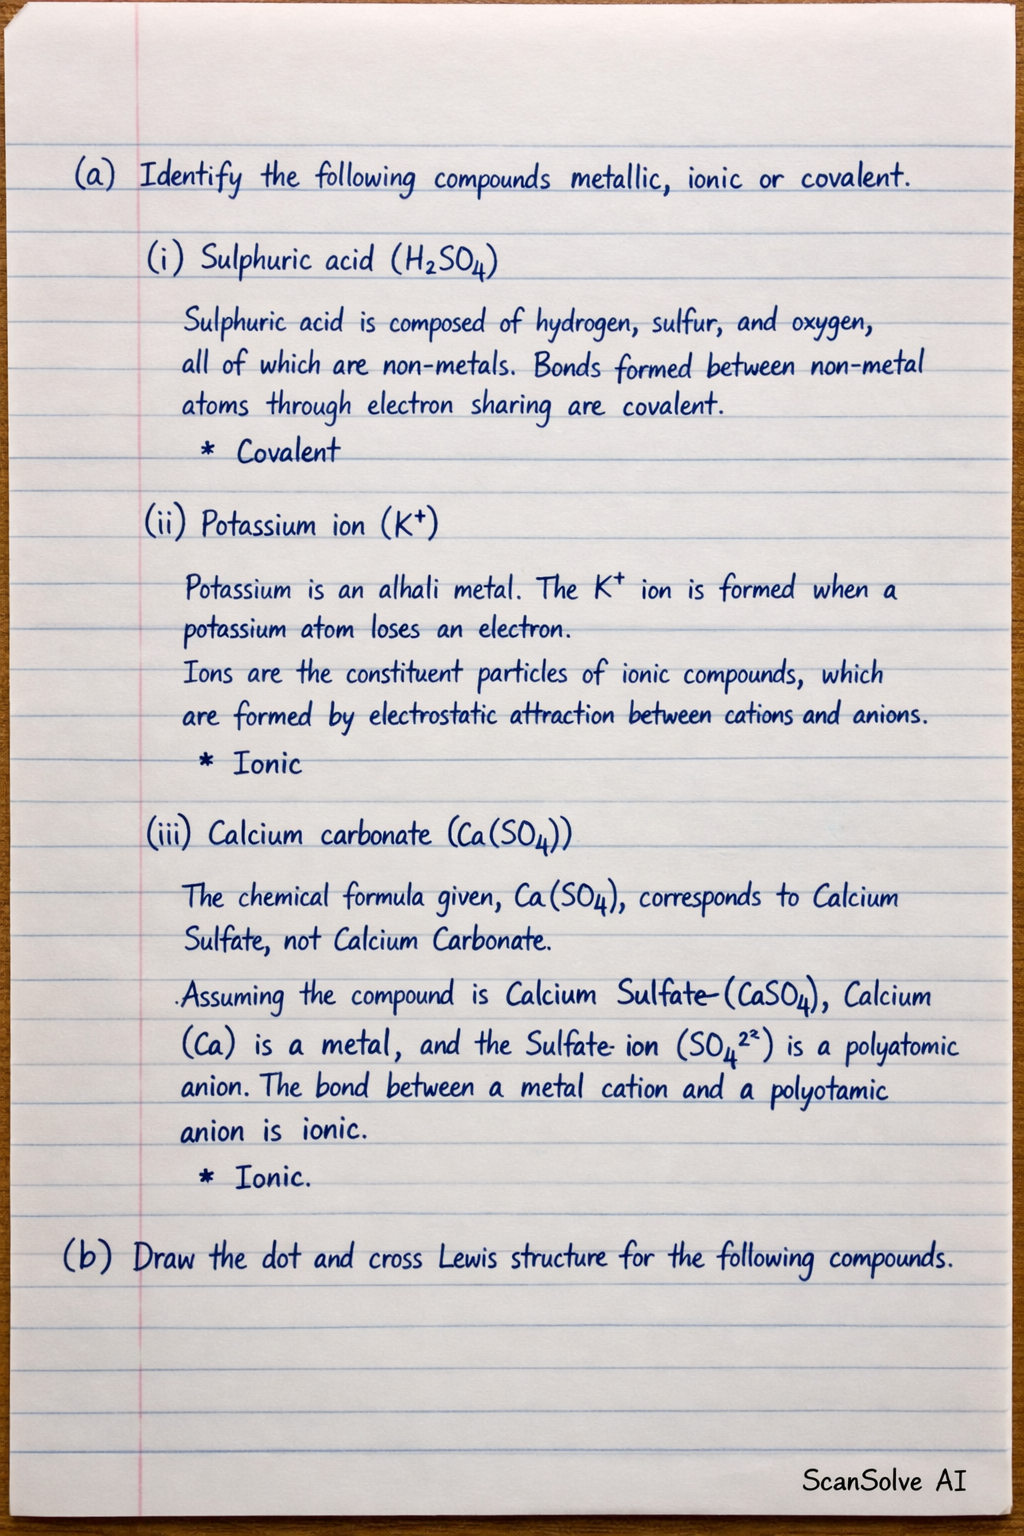 (a) Identify the following compounds metallic, ionic or covalent.
(i) Sulphuric acid (H₂SO₄)
Sulphuric acid is composed of hydrogen, sulfur, and oxygen,
all of which are non-metals. Bonds formed between non-metal
atoms through electron sharing are covalent.
* Covalent
(ii) Potassium ion (K⁺)
Potassium is an alhali metal. The K⁺ ion is formed when a
potassium atom loses an electron.
Ions are the constituent particles of ionic compounds, which
are formed by electrostatic attraction between cations and anions.
* Ionic
(iii) Calcium carbonate (Ca(SO₄))
The chemical formula given, Ca(SO₄), corresponds to Calcium
Sulfate, not Calcium Carbonate.
.Assuming the compound is Calcium Sulfate-(CaSO₄), Calcium
(Ca) is a metal, and the Sulfate- ion (SO₄²²) is a polyatomic
anion. The bond between a metal cation and a polyotamic
anion is ionic.
* Ionic.
(b) Draw the dot and cross Lewis structure for the following compounds.
ScanSolve AI